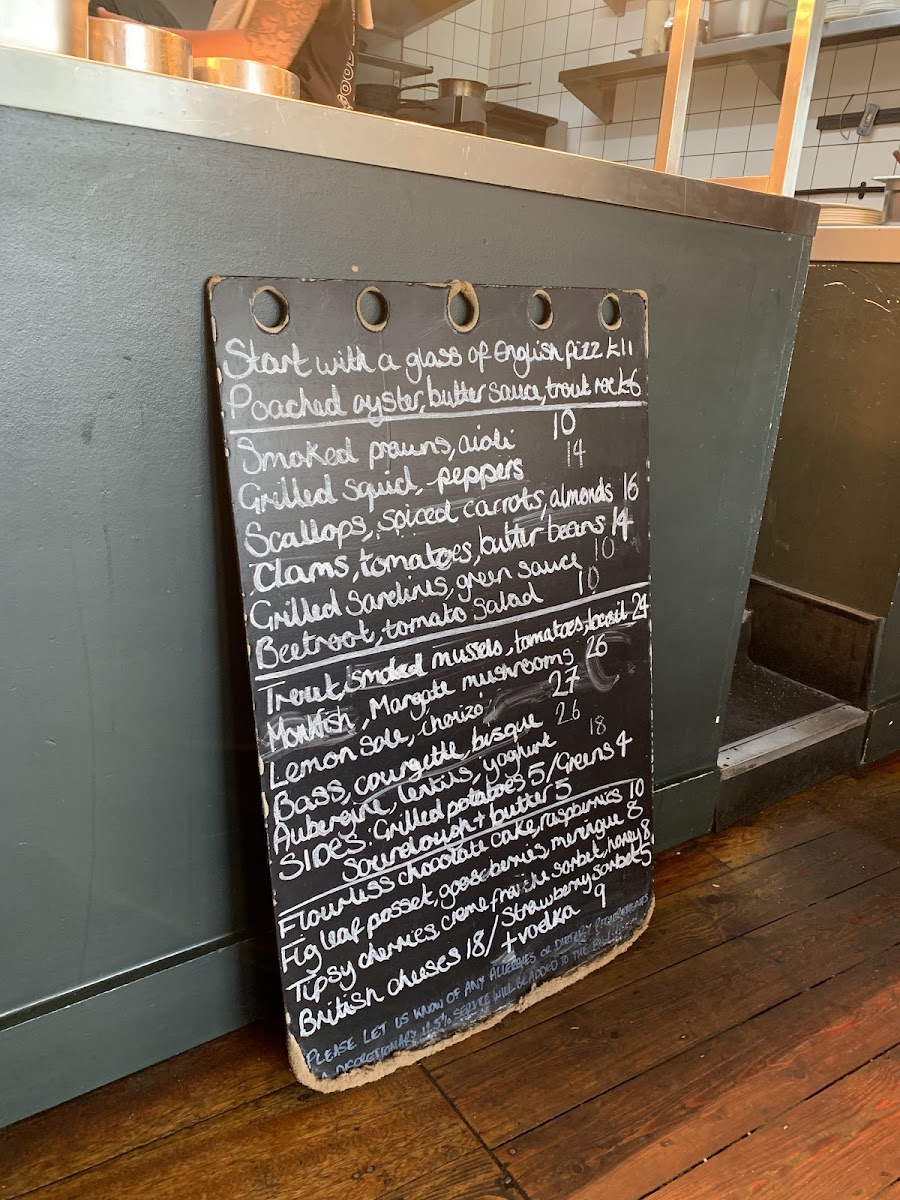 Start with a glass of English fizz £11
Poached oyster, butter sauce, trout roe £6
Smoked prawns, aioli 10
Grilled squid, peppers 14
Scallops, spiced carrots, almonds 16
Clams, tomatoes, butter beans 14
Grilled Sardines, green sauce 10
Beetroot, tomato salad 10
Trout, smoked mussels, tomatoes, basil 24
Monkfish, Margate mushrooms 26
Lemon Sole, chorizo 27
Bass, courgette, bisque 26
Aubergine, lentils, yoghurt 18
SIDES: Grilled potatoes 5/Greens 4
Sourdough + butter 5
Flourless chocolate cake, raspberries 10
Fig leaf posset, gooseberries, meringue 8
Tipsy cherries, creme fraiche sorbet, honey 8
British cheeses 18/Strawberry Sorbet 5
+vodka 9
PLEASE LET US KNOW OF ANY ALLERGIES OR DIETARY REQUIREMENTS
A DISCRETIONARY 12.5% SERVICE WILL BE ADDED TO THE BILL